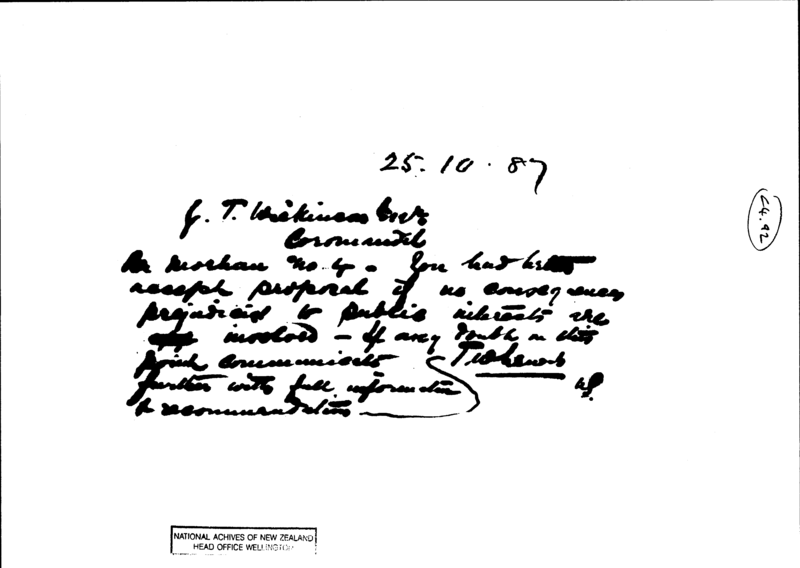 25. 10. 87
G. T. Wilkinson Esqre
Coromandel
Re Moehau No. 4. You had better
accept proposal if no consequences
prejudicial to public interests are
involved – If any doubt on this
point communicate
further with full information
& recommendation
T W Lewis
C4.92
NATIONAL ACHIVES OF NEW ZEALAND
HEAD OFFICE WELLINGTON